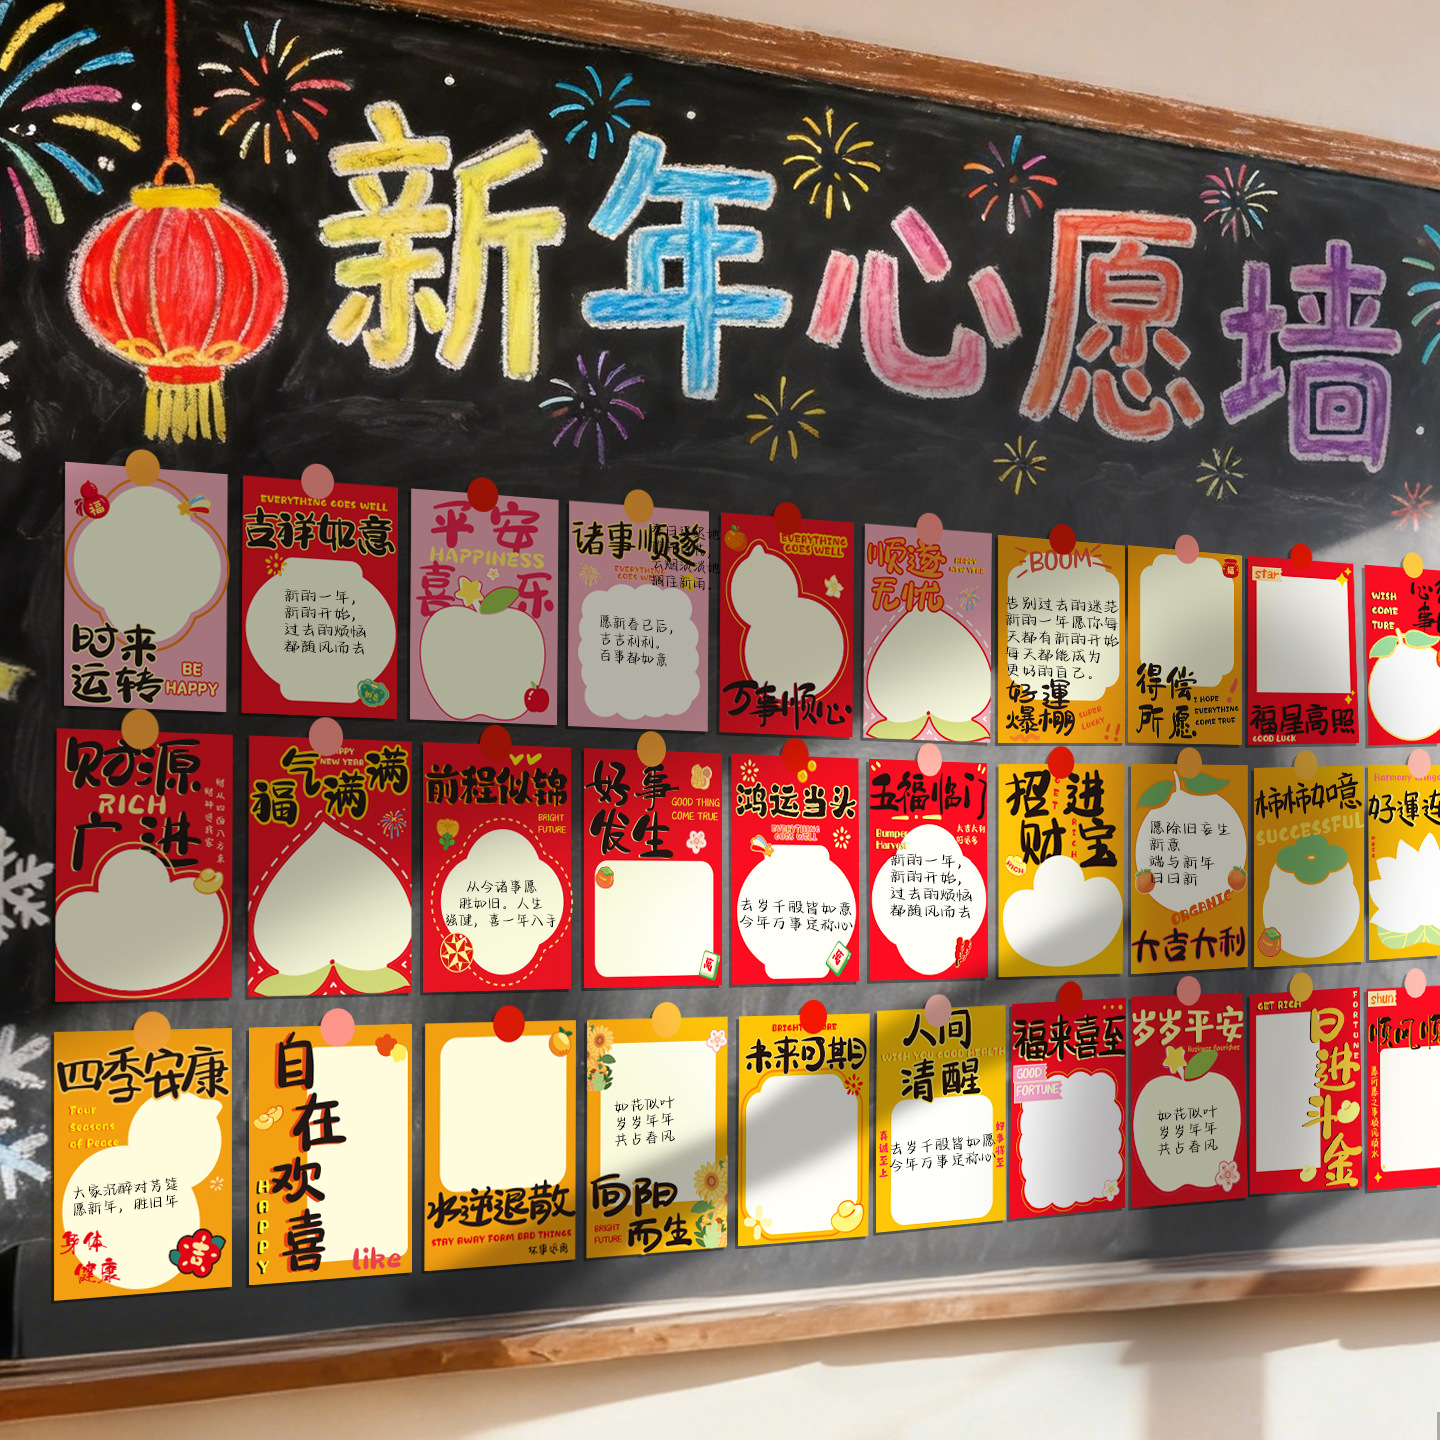 新年心愿墙
福
时来
运转
BE
HAPPY
EVERYTHING GOES WELL
吉祥如意
新的一年，
新的开始，
过去的烦恼
都随风而去
平安
HAPPINESS
喜乐
诸事顺遂
EVERYTHING
GOES WELL
愿新春已后，
吉吉利利。
百事都如意
EVERYTHING
GOES WELL
万事顺心
顺遂
无忧
HAPPY
NEW YEAR
BOOM
告别过去的迷茫
新的一年愿你每
天都有新的开始
每天都能成为
更好的自己。
好運
爆棚
SUPER
LUCKY
福
得偿
所愿
I HOPE
EVERYTHING
COME TRUE
star
福星高照
GOOD LUCK
WISH
COME
TURE
财源
RICH
广进
财从四面八方来
财神进我家
HAPPY
NEW YEAR
福气满满
前程似锦
BRIGHT
FUTURE
从今诸事愿
胜如旧。人生
强健，喜一年入手
好事
发生
GOOD THING
COME TRUE
萬
鸿运当头
EVERYTHING
GOES WELL
去岁千般皆如意
今年万事定称心
五福临门
Bumper
Harvest
大吉大利
好运多
新的一年，
新的开始，
过去的烦恼
都随风而去
招进
财宝
GET
RICH
RICH
愿除旧妄生
新意
端与新年
日日新
ORGANIC
大吉大利
柿柿如意
SUCCESSFUL
好運连
四季安康
Four
Seasons
of Peace
大家沉醉对芳筵
愿新年，胜旧年
身体
健康
吉
自在欢喜
HAPPY
like
水逆退散
STAY AWAY FORM BAD THINGS
坏事远离
如花似叶
岁岁年年
共占春风
向阳
而生
BRIGHT
FUTURE
未来可期
人间
WISH YOU GOOD HEALTH
清醒
真诚至上
好事将至
去岁千般皆如愿
今年万事定称心
福来喜至
GOOD
FORTUNE
岁岁平安
Business flourishes
如花似叶
岁岁年年
共占春风
GET RICH
FORTUNE
日进斗金
shun